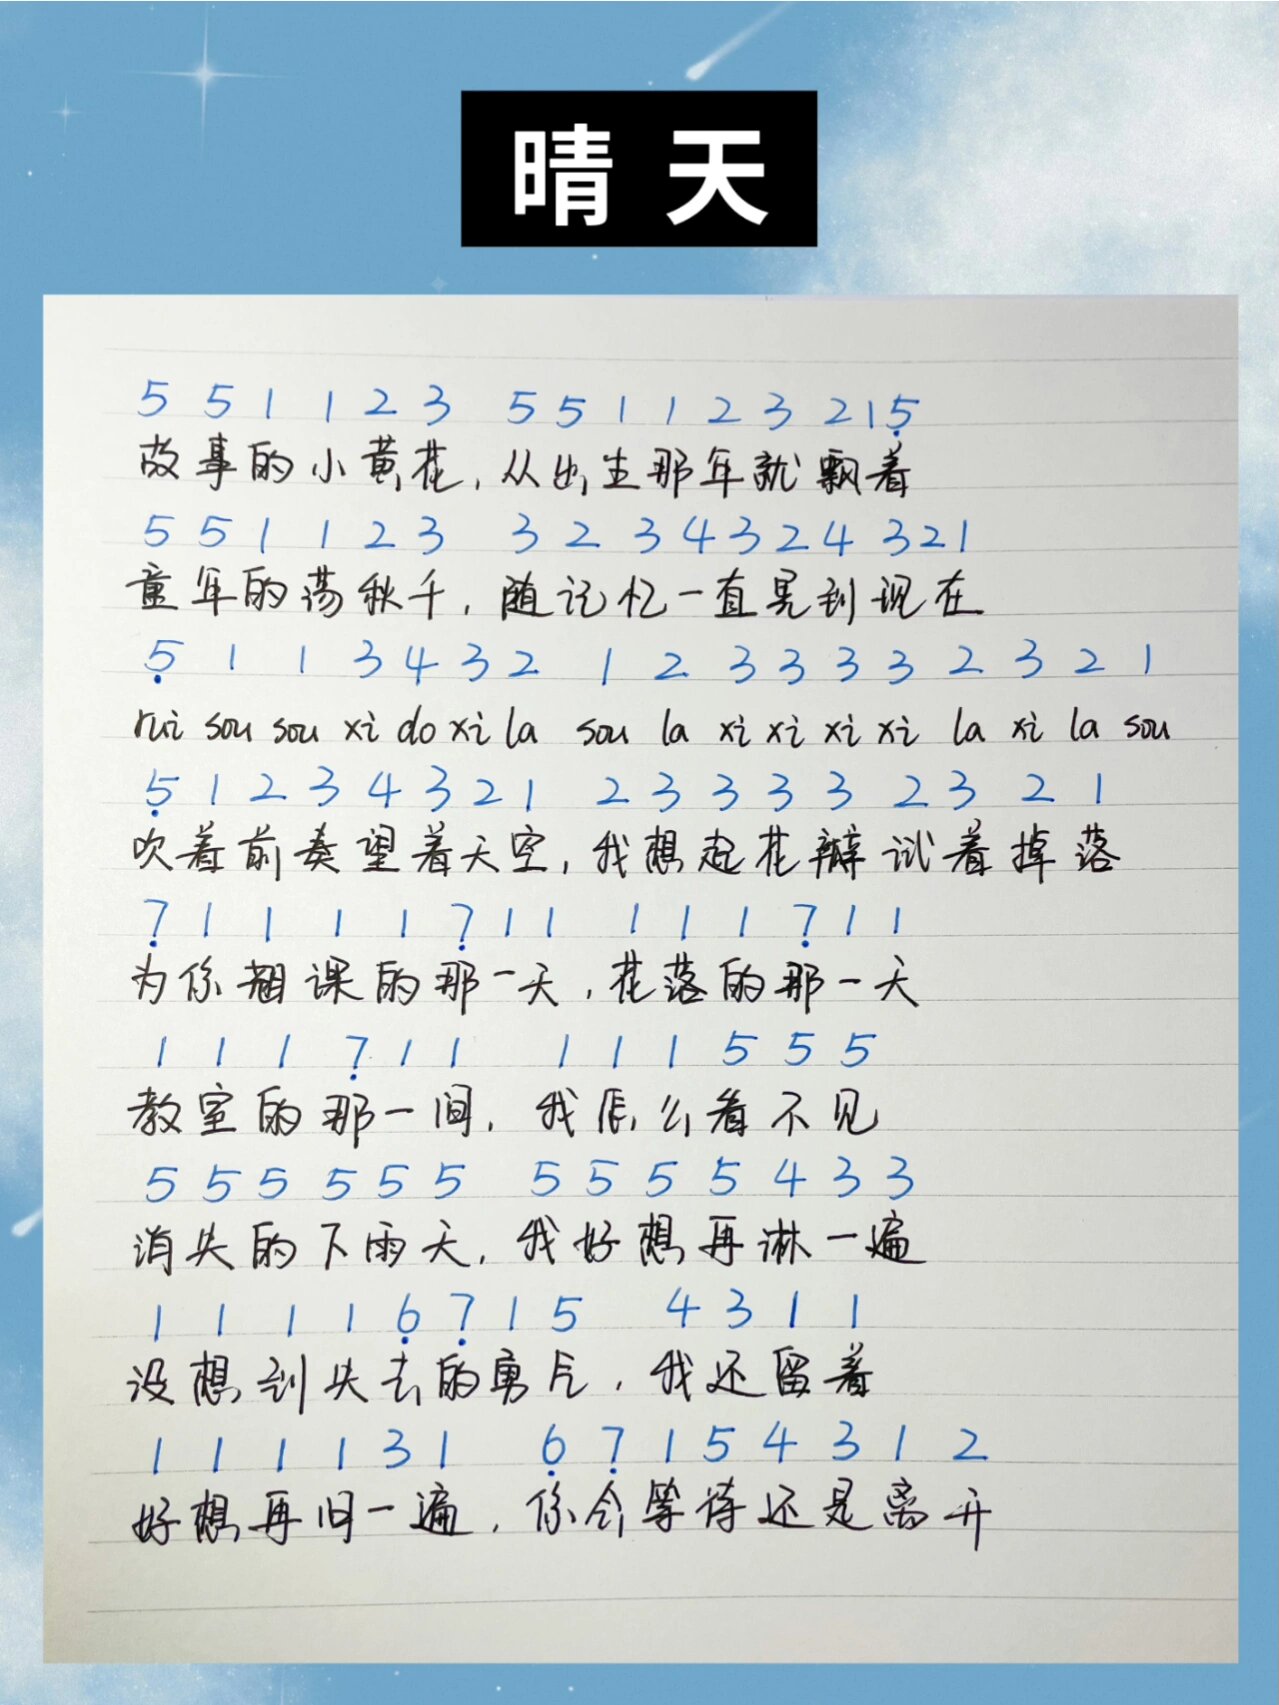 晴天
5 5 1 1 2 3 5 5 1 1 2 3 2 1 5̣
故事的小黄花，从出生那年就飘着
5 5 1 1 2 3 3 2 3 4 3 2 4 3 2 1
童年的荡秋千，随记忆一直晃到现在
5̣ 1 1 3 4 3 2 1 2 3 3 3 3 2 3 2 1
rui sou sou xi do xi la sou la xi xi xi xi la xi la sou
5̣ 1 2 3 4 3 2 1 2 3 3 3 3 2 3 2 1
吹着前奏望着天空，我想起花瓣试着掉落
7̣ 1 1 1 1 7̣ 1 1 1 1 1 7̣ 1 1
为你翘课的那一天，花落的那一天
1 1 1 7̣ 1 1 1 1 1 5 5 5
教室的那一间，我怎么看不见
5 5 5 5 5 5 5 5 5 5 4 3 3
消失的下雨天，我好想再淋一遍
1 1 1 1 6̣ 7̣ 1 5 4 3 1 1
没想到失去的勇气，我还留着
1 1 1 1 3 1 6̣ 7̣ 1 5 4 3 1 2
好想再问一遍，你会等待还是离开